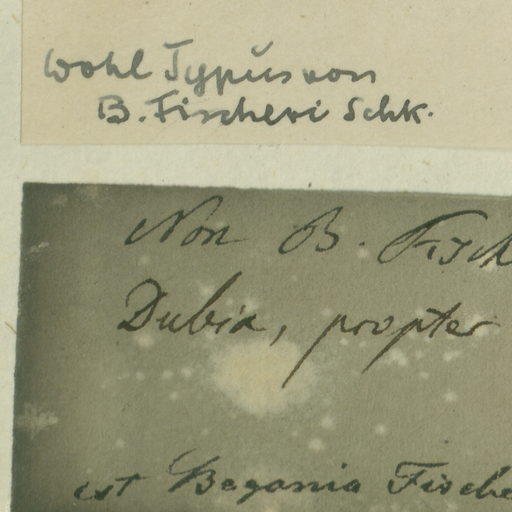 Wohl Typus von
B. Fischeri Schk.
Non B. Fisch
Dubia, propter
est Begonia Fische